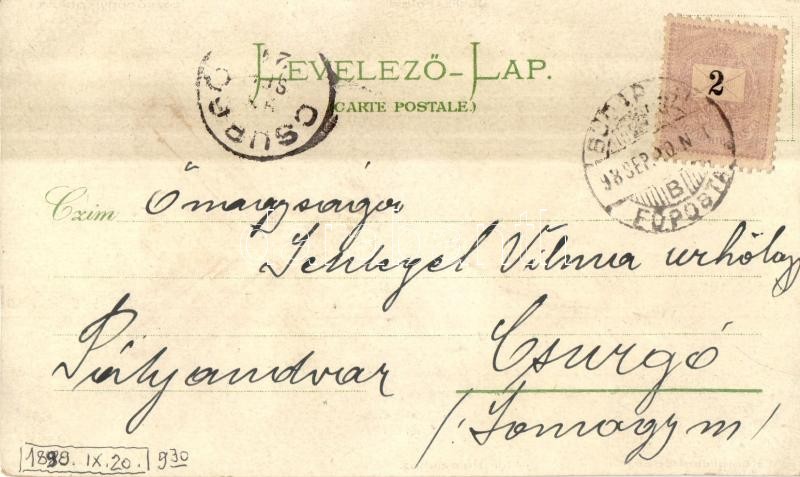 LEVELEZŐ-LAP.
(CARTE POSTALE.)
CSURGÓ
2
98 SEP 20 N
B
FŐPOSTA
Czim Őnagysága
Schlegel Vilma urhölgy
Csurgó
Pályaudvar
(Somogym)
1898. IX. 20. 930